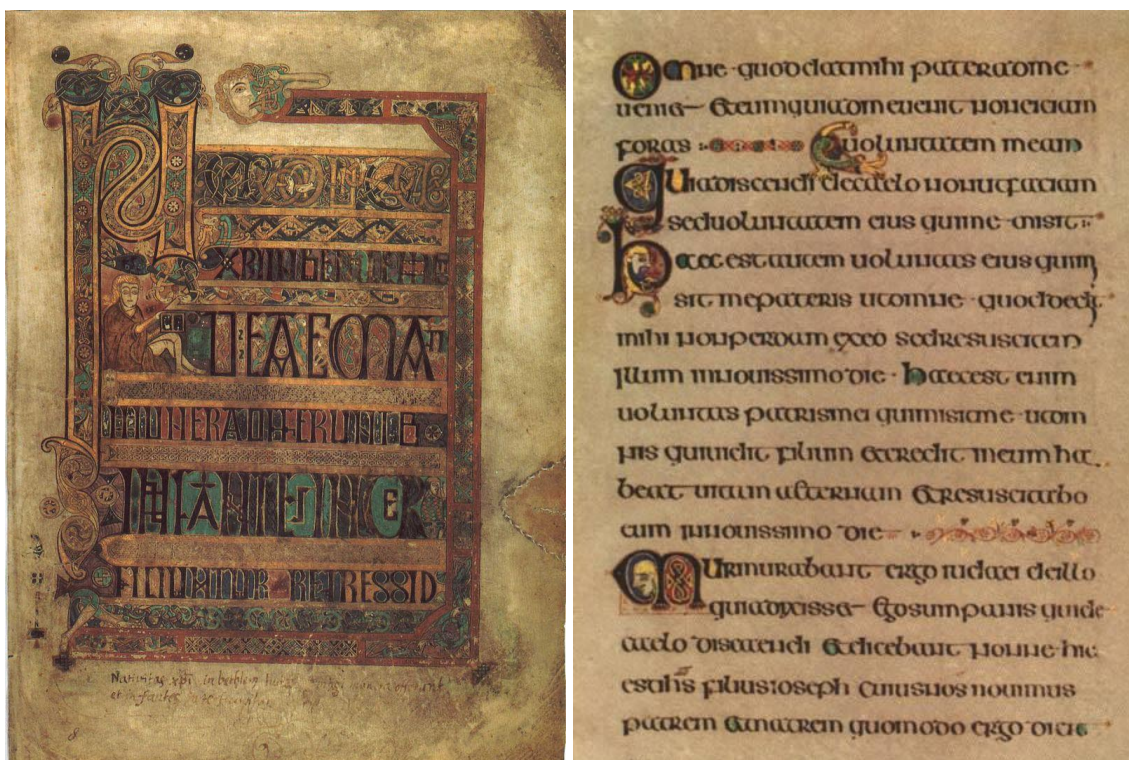 IUDEAE MA
GI MUNERA OFFERUNT E
INFANTES INTER
FICIUNTUR REGRESSIO
Nativitas xpi in bethlem munera offerunt
et infantes
8
Omne quod dat mihi pater ad me
ueniet Et eum qui ad me uenit non eiciam
foras uoluntatem meam
Quia discendi de caelo non ut faciam
sed uoluntatem eius qui me misit
haec est autem uoluntas eius qui m
sit me patris ut omne quod dedit
mihi non perdam ex eo sed resuscitem
illum in nouissimo die haec est enim
uoluntas patris mei qui misit me ut om
nis qui uidit filium et credit in eum ha
beat uitam aeternam Et resuscitabo
eum in nouissimo die
Murmurabant ergo iudaei de illo
quia dixisset Ego sum panis qui de
caelo discendi Et dicebant nonne hic
est filius ioseph cuius nos nouimus
patrem et matrem quomodo ergo dicit